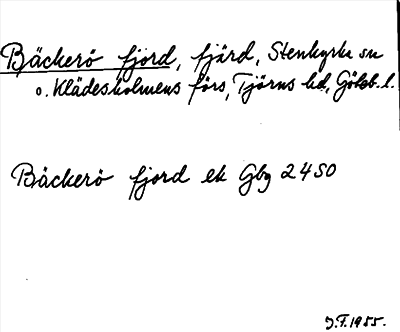 Bäckerö fjord, fjärd, Stenkyrka sn
o. Klädesholmens förs, Tjörns hd, Göteb. l.
Bäckerö fjord ek Gbg 24 SO
J.F. 1955.